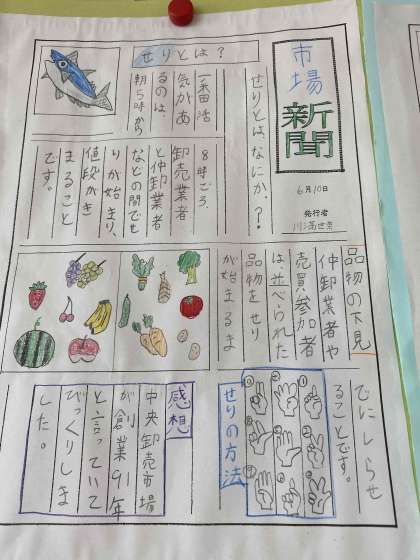 市場
新聞
6月10日
発行者
せりとは?
せりとは、なにか?
一番活
気があ
るのは、
朝5時から
8時ごろ、
卸売業者
と仲卸業者
などの間でせ
りが始まり、
値段がき
まること
です。
品物の下見
仲卸業者や
売買参加者
は、並べられた
品物をせり
が始まるま
でにしらせ
ることです。
せりの方法
感想
中央卸売市場
が創業91年
と言っていて
びっくりしま
した。